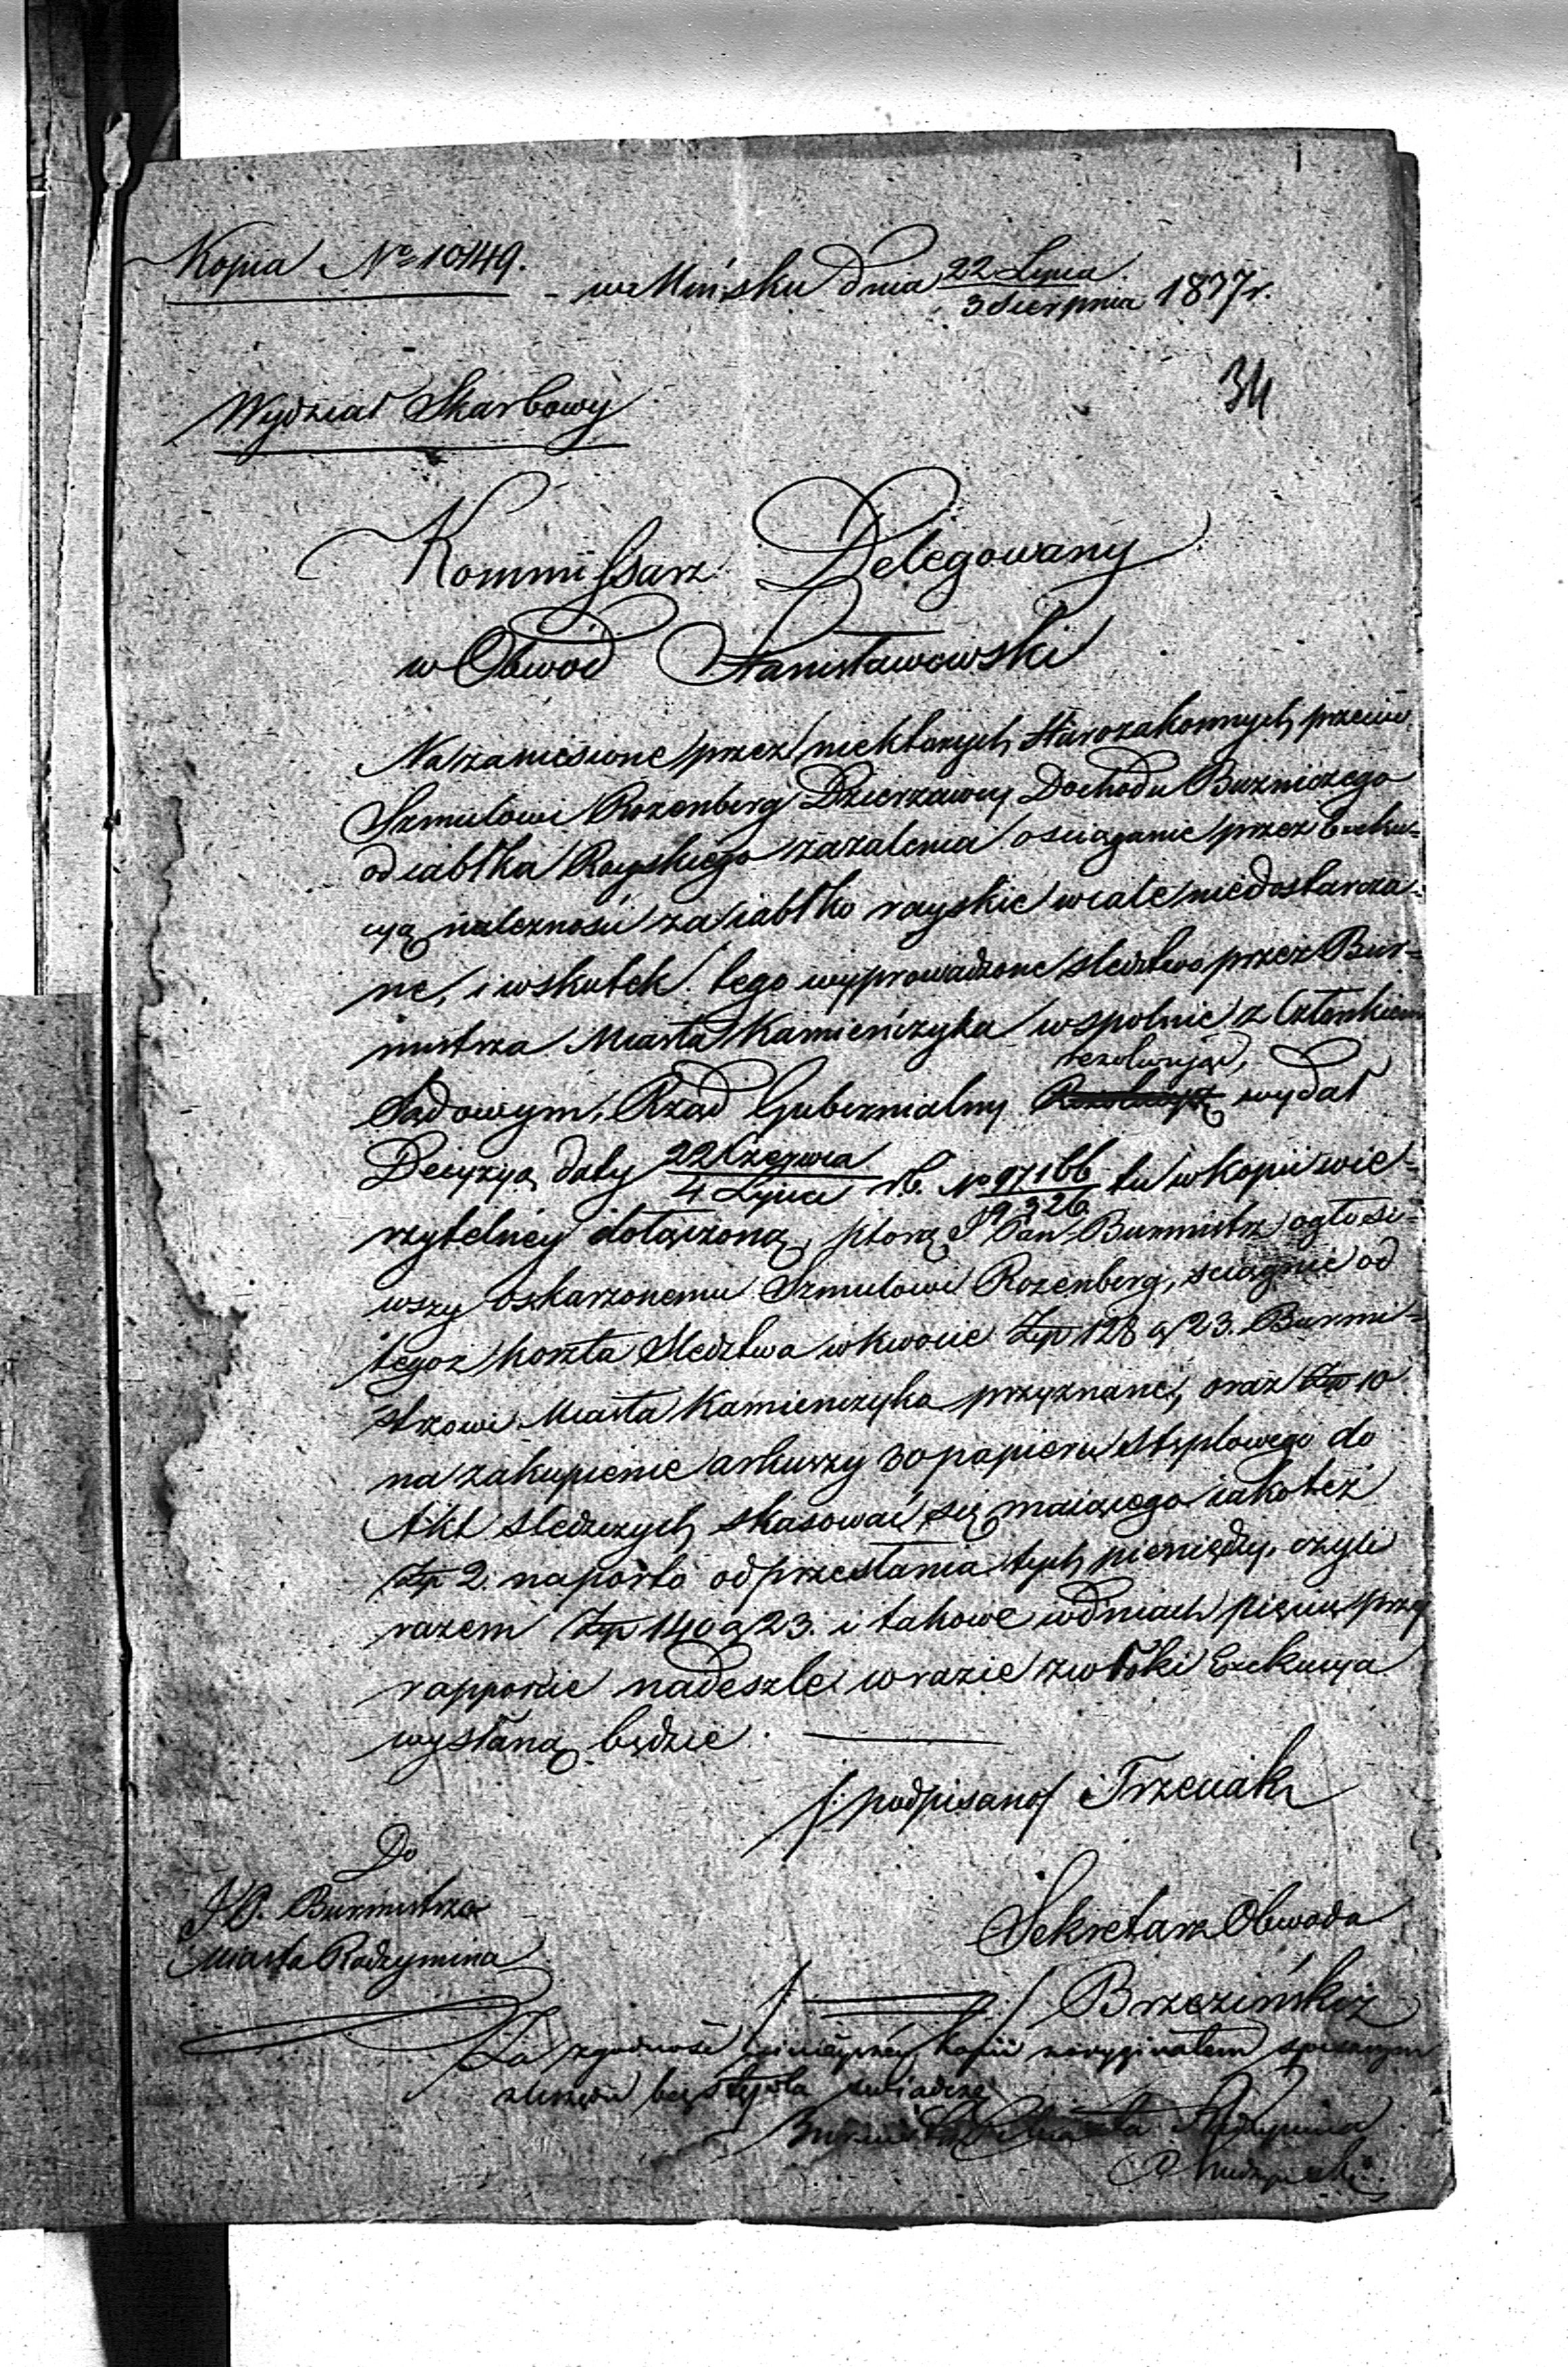 Kopia No 10149.
w Mińsku dnia 22 Lipca / 3 Sierpnia 1837 r.
34
Wydział Skarbowy
Kommissarz Delegowany
w Obwód Stanisławowski
Na zaniesione przez niektorych Starozakonnych przeciw
Szmulowi Rozenberg Dzierzawcy Dochodu Bozniczego
od iabłka Rayskiego zazalenia o sciąganie przez Exeku=
cyą nalezności za iabłko rayskie wcale niedostarczo=
ne, i wskutek tego wyprowadzone sledztwo przez Bur=
mistrza Miasta Kamieńczyka wspolnie z Członkiem
rezolwując,
Sądowym, Rząd Gubernialny wydał
Decyzyą daty 22 Czerwca / 4 Lipca r.b. No 97166 / 19326 tu w kopii wie=
rzytelney dołączoną, ktorą Pan Burmistrz ogłosi=
wszy oskarzonemu Szmulowi Rozenberg, sciągnie od
tegoz koszta Sledztwa w kwocie Złp 128 g 23. Burmi=
strzowi Miasta Kamienczyka przyznane, oraz Złp 10
na zakupienie arkuszy 30 papieru stęplowego do
Akt sledczych skasować się maiącego iakoteż
Złp 2. na porto od przesłania tych pieniędzy, czyli
razem Złp 140 g 23. i takowe w dniach pięciu przy
rapporcie nadeszle w razie zwłoki Exekucya
wysłaną będzie.
/: podpisano / Trzeciak
Do
Burmistrza
Miasta Radzymina
Sekretarz Obwodu
/: :/ Brzeziński
Za zgodność ninieyszéy kopii z oryginałem spisanym
z urzędu bez stępla swiadczę
Burmistrz Miasta Radzymina